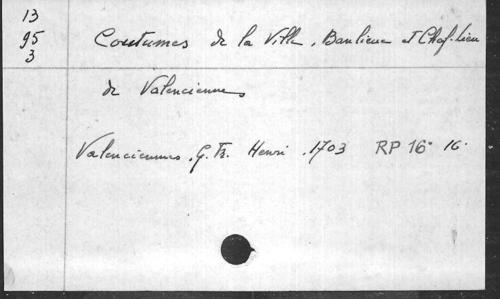 13
95
3
Coutumes de la Ville, Banlieue et Chef-lieu
de Valenciennes
Valenciennes, G. Fr. Henri, 1703 RP 16° 16.